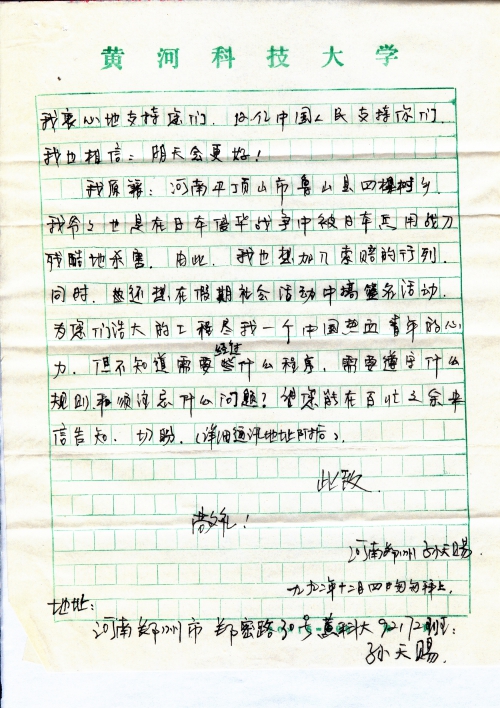 黄河科技大学
我衷心地支持您们，每位中国人民支持你们，
我也相信：明天会更好！
我原籍：河南平顶山市鲁山县四棵树乡。
我爷爷也是在日本侵华战争中被日本兵用战刀
残酷地杀害。由此，我也想加入索赔的行列。
同时，您还想在假期社会活动中搞签名活动，
为您们浩大的工程尽我一个中国热血青年的心
力，但不知道需要经过些什么程序，需要遵守什么
规则和须注意什么问题？望您能在百忙之余来
信告知，切盼。（详细通讯地址附后）。
此致
敬礼！
河南郑州 孙天赐
一九九二年十二月四日匆匆拜上。
地址：
河南郑州市郑密路30号黄科大921/2班：
孙天赐。